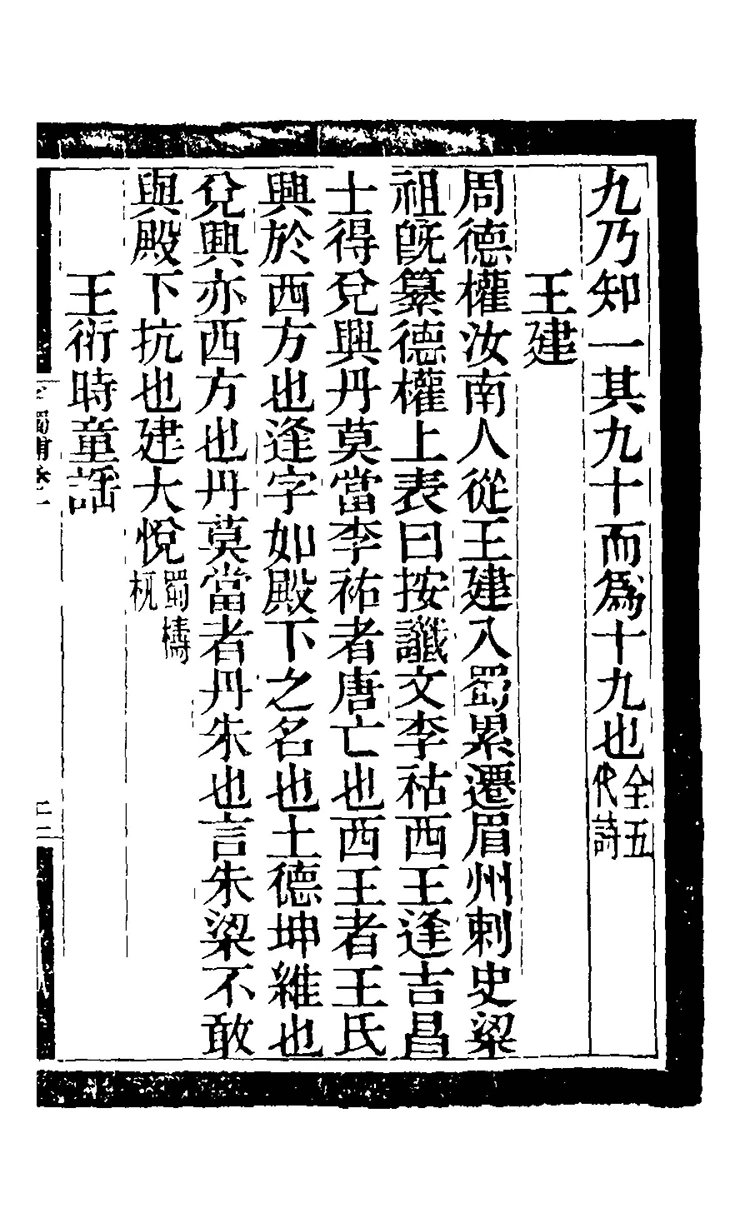 九乃知一其九十而為十九也全五代詩
王建
周德權汝南人從王建入蜀累遷眉州刺史梁
祖旣纂德權上表曰按讖文李祜西王逢吉昌
士得兌興丹莫當李祐者唐亡也西王者王氏
興於西方也逢字如殿下之名也土德坤維也
兌興亦西方也丹莫當者丹朱也言朱梁不敢
與殿下抗也建大悅蜀檮杌
王衍時童謡